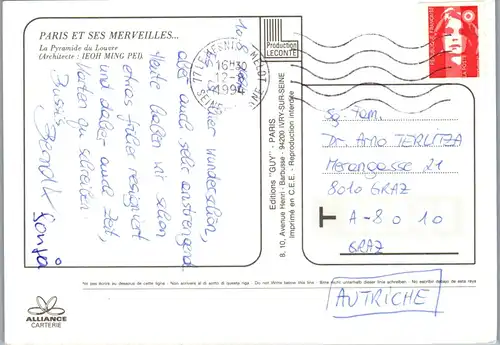 PARIS ET SES MERVEILLES...
La Pyramide du Louvre
(Architecte : IEOH MING PEI).
10.8.
hier wunderschön,
aber auch sehr anstrengend.
Heute haben wir schon
etwas früher resigniert
und daher auch Zeit,
Karten zu schreiben.
Bussi
Sonja
16H30
12-8
1994
SEINE
Production
LECONTE
RÉPUBLIQUE FRANÇAISE
Editions "GUY" - PARIS
8, 10, Avenue Henri - Barbusse - 94200 IVRY-SUR-SEINE
Imprimé en C.E.E. - Reproduction interdite
Sg. Fam.
Dr. Arno TERLITZA
Merangasse 21
8010 GRAZ
T
A-8010
GRAZ
AUTRICHE
*Ne pas écrire au-dessous de cette ligne - Non scrivere al di sotto di questa riga - Do not Write below this line - Bitte nicht unterhalb dieser linie schreiben - No escribir debajo de esta raya
ALLIANCE
CARTERIE